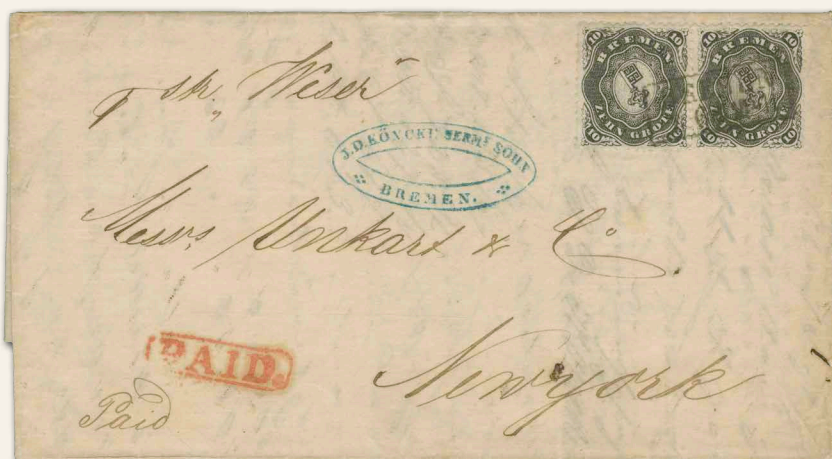 10 BREMEN 10
ZEHN GROTE
10 10
10 BREMEN 10
ZEHN GROTE
10 10
pr Str. "Weser"
J.D. KÖNCKE HERM. SOHN
BREMEN.
Messrs Unkart & Co
PAID.
Newyork
Paid